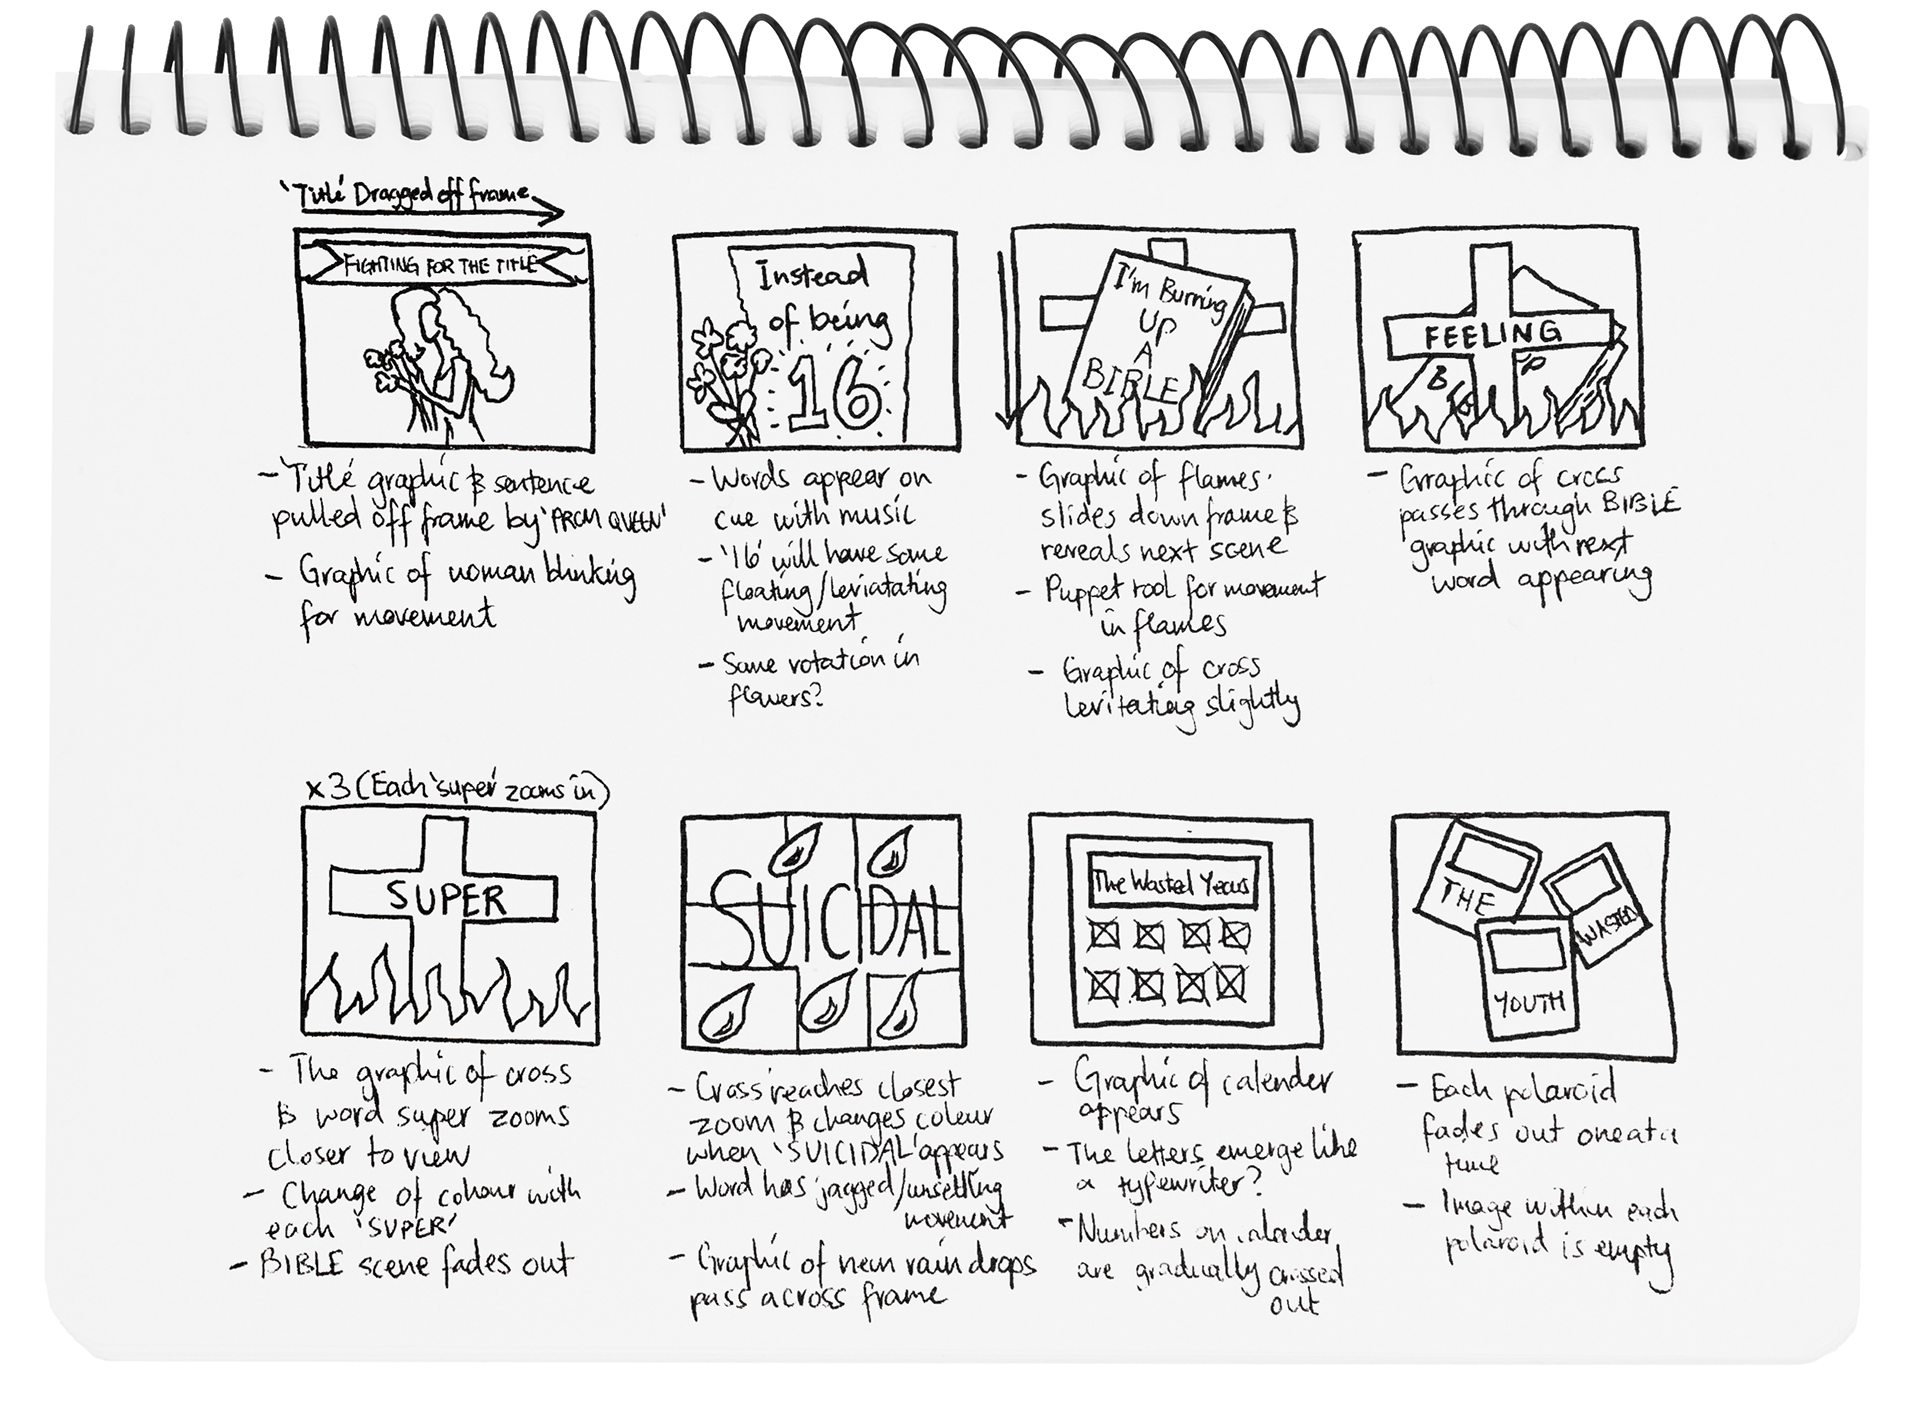 'Title' Dragged off frame
FIGHTING FOR THE TITLE
- 'Title' graphic & sentence
pulled off frame by 'PROM QUEEN'
- Graphic of woman blinking
for movement
Instead
of being
16
- Words appear on
cue with music
- '16' will have some
floating/leviatating
movement
- Some rotation in
flowers?
I'm Burning
UP
A
BIBLE
- Graphic of flames
slides down frame &
reveals next scene
- Puppet tool for movement
in flames
- Graphic of cross
levitating slightly
FEELING
- Graphic of cross
passes through BIBLE
graphic with next
word appearing
x3 (Each 'super' zooms in)
SUPER
- The graphic of cross
& word super zooms
closer to view
- Change of colour with
each 'SUPER'
- BIBLE scene fades out
SUICIDAL
- Cross reaches closest
zoom & changes colour
when 'SUICIDAL' appears
- Word has jagged/unsettling
movement
- Graphic of neon rain drops
pass across frame
The Wasted Years
- Graphic of calender
appears
- The letters emerge like
a typewriter?
- Numbers on calender
are gradually crossed
out
THE
WASTED
YOUTH
- Each polaroid
fades out one at a
time
- Image within each
polaroid is empty